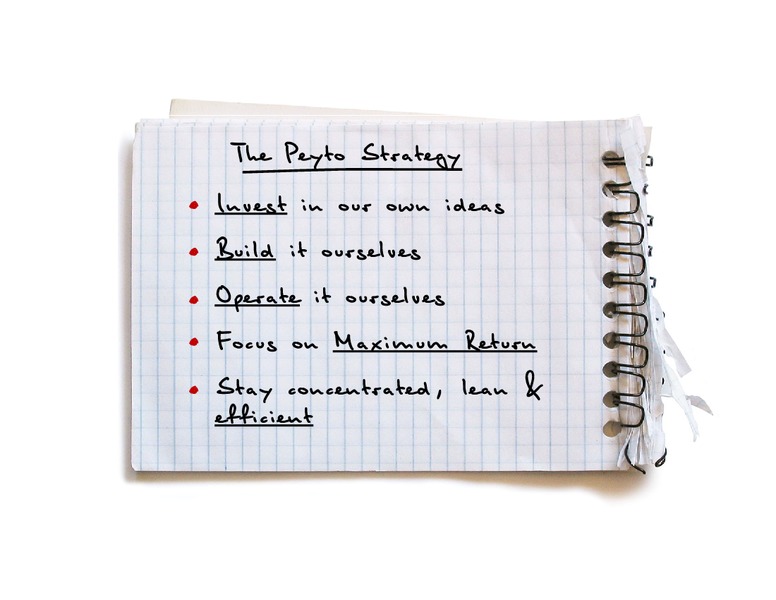 The Peyto Strategy
• Invest in our own ideas
• Build it ourselves
• Operate it ourselves
• Focus on Maximum Return
• Stay concentrated, lean &
efficient